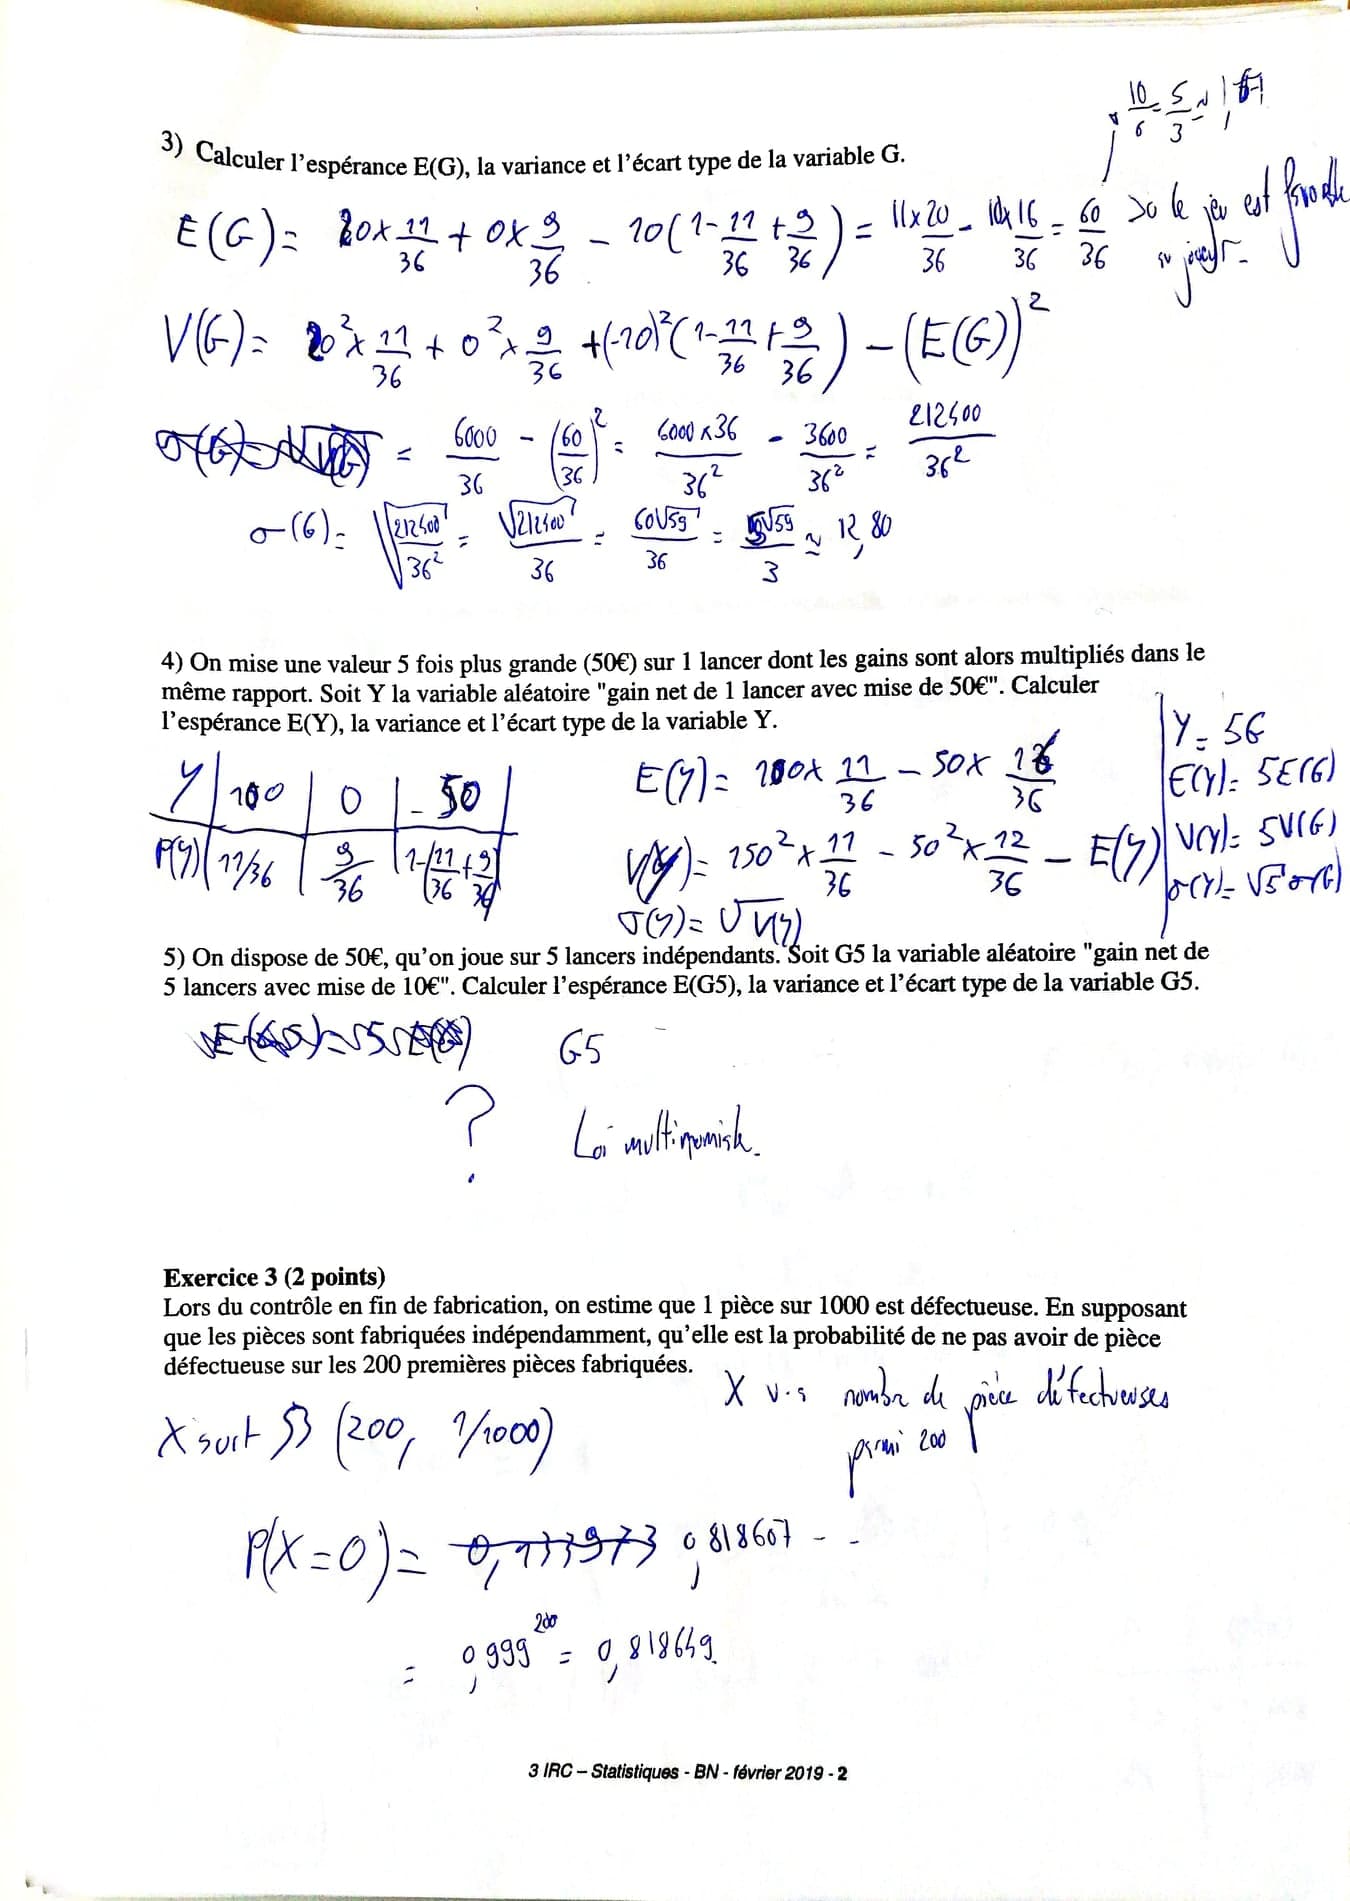 10/6 = 5/3 ≈ 1,67
3) Calculer l'espérance E(G), la variance et l'écart type de la variable G.
E(G) = 20 x 11/36 + 0 x 9/36 - 10(1 - 11/36 + 9/36) = 11x20/36 - 10x16/36 = 60/36 Dò le jeu est favorable au joueur.
V(G) = 20² x 11/36 + 0² x 9/36 + (-10)²(1 - 11/36 + 9/36) - (E(G))²
σ(G) = √V(G) = 6000/36 - (60/36)² = 6000 x 36/36² - 3600/36² = 212400/36²
σ(G) = √(212400/36²) = √212400/36 = 60√59/36 = 5√59/3 ≈ 12,80
4) On mise une valeur 5 fois plus grande (50€) sur 1 lancer dont les gains sont alors multipliés dans le
même rapport. Soit Y la variable aléatoire "gain net de 1 lancer avec mise de 50€". Calculer
l'espérance E(Y), la variance et l'écart type de la variable Y.
Y | 100 | 0 | -50 |
P(Y) | 11/36 | 9/36 | 1-(11/36 + 9/36)
E(Y) = 100 x 11/36 - 50 x 16/36
V(Y) = 150² x 11/36 - 50² x 12/36 - E(Y)
σ(Y) = √V(Y)
Y = 5G
E(Y) = 5E(G)
V(Y) = 5V(G)
σ(Y) = √5 σ(G)
5) On dispose de 50€, qu'on joue sur 5 lancers indépendants. Soit G5 la variable aléatoire "gain net de
5 lancers avec mise de 10€". Calculer l'espérance E(G5), la variance et l'écart type de la variable G5.
G5
? Loi multinomiale.
Exercice 3 (2 points)
Lors du contrôle en fin de fabrication, on estime que 1 pièce sur 1000 est défectueuse. En supposant
que les pièces sont fabriquées indépendamment, qu'elle est la probabilité de ne pas avoir de pièce
défectueuse sur les 200 premières pièces fabriquées.
X v.a nombre de pièce défectueuses
parmi 200
X suit B (200, 1/1000)
P(X=0) = 0,818607 - -
= 0,999²⁰⁰ = 0,818649.
3 IRC – Statistiques - BN - février 2019 - 2